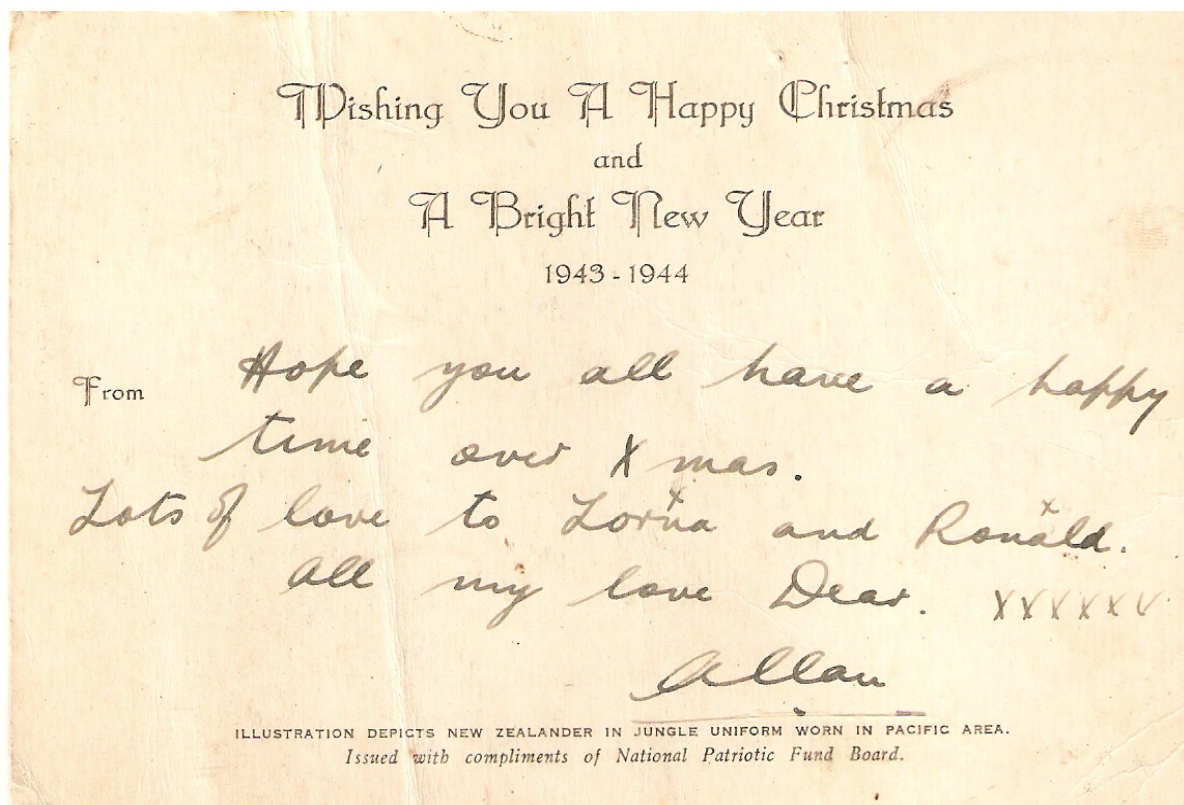 Wishing You A Happy Christmas
and
A Bright New Year
1943 - 1944
From Hope you all have a happy
time over Xmas.
Lots of love to Lorna and Ronald.
x x
All my love Dear. xxxxxx
Allan
ILLUSTRATION DEPICTS NEW ZEALANDER IN JUNGLE UNIFORM WORN IN PACIFIC AREA.
Issued with compliments of National Patriotic Fund Board.